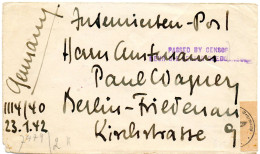 Internierten-Post
Germany
Herrn Amtmann
PASSED BY CENSOR
Paul Wagner
Berlin-Friedenau
1114/40
23.1.42
Kirchstrasse 9